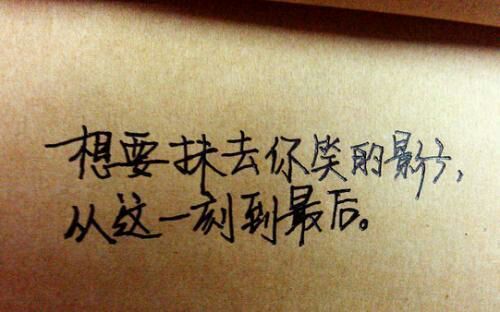 想要抹去你笑的影子,
从这一刻到最后。